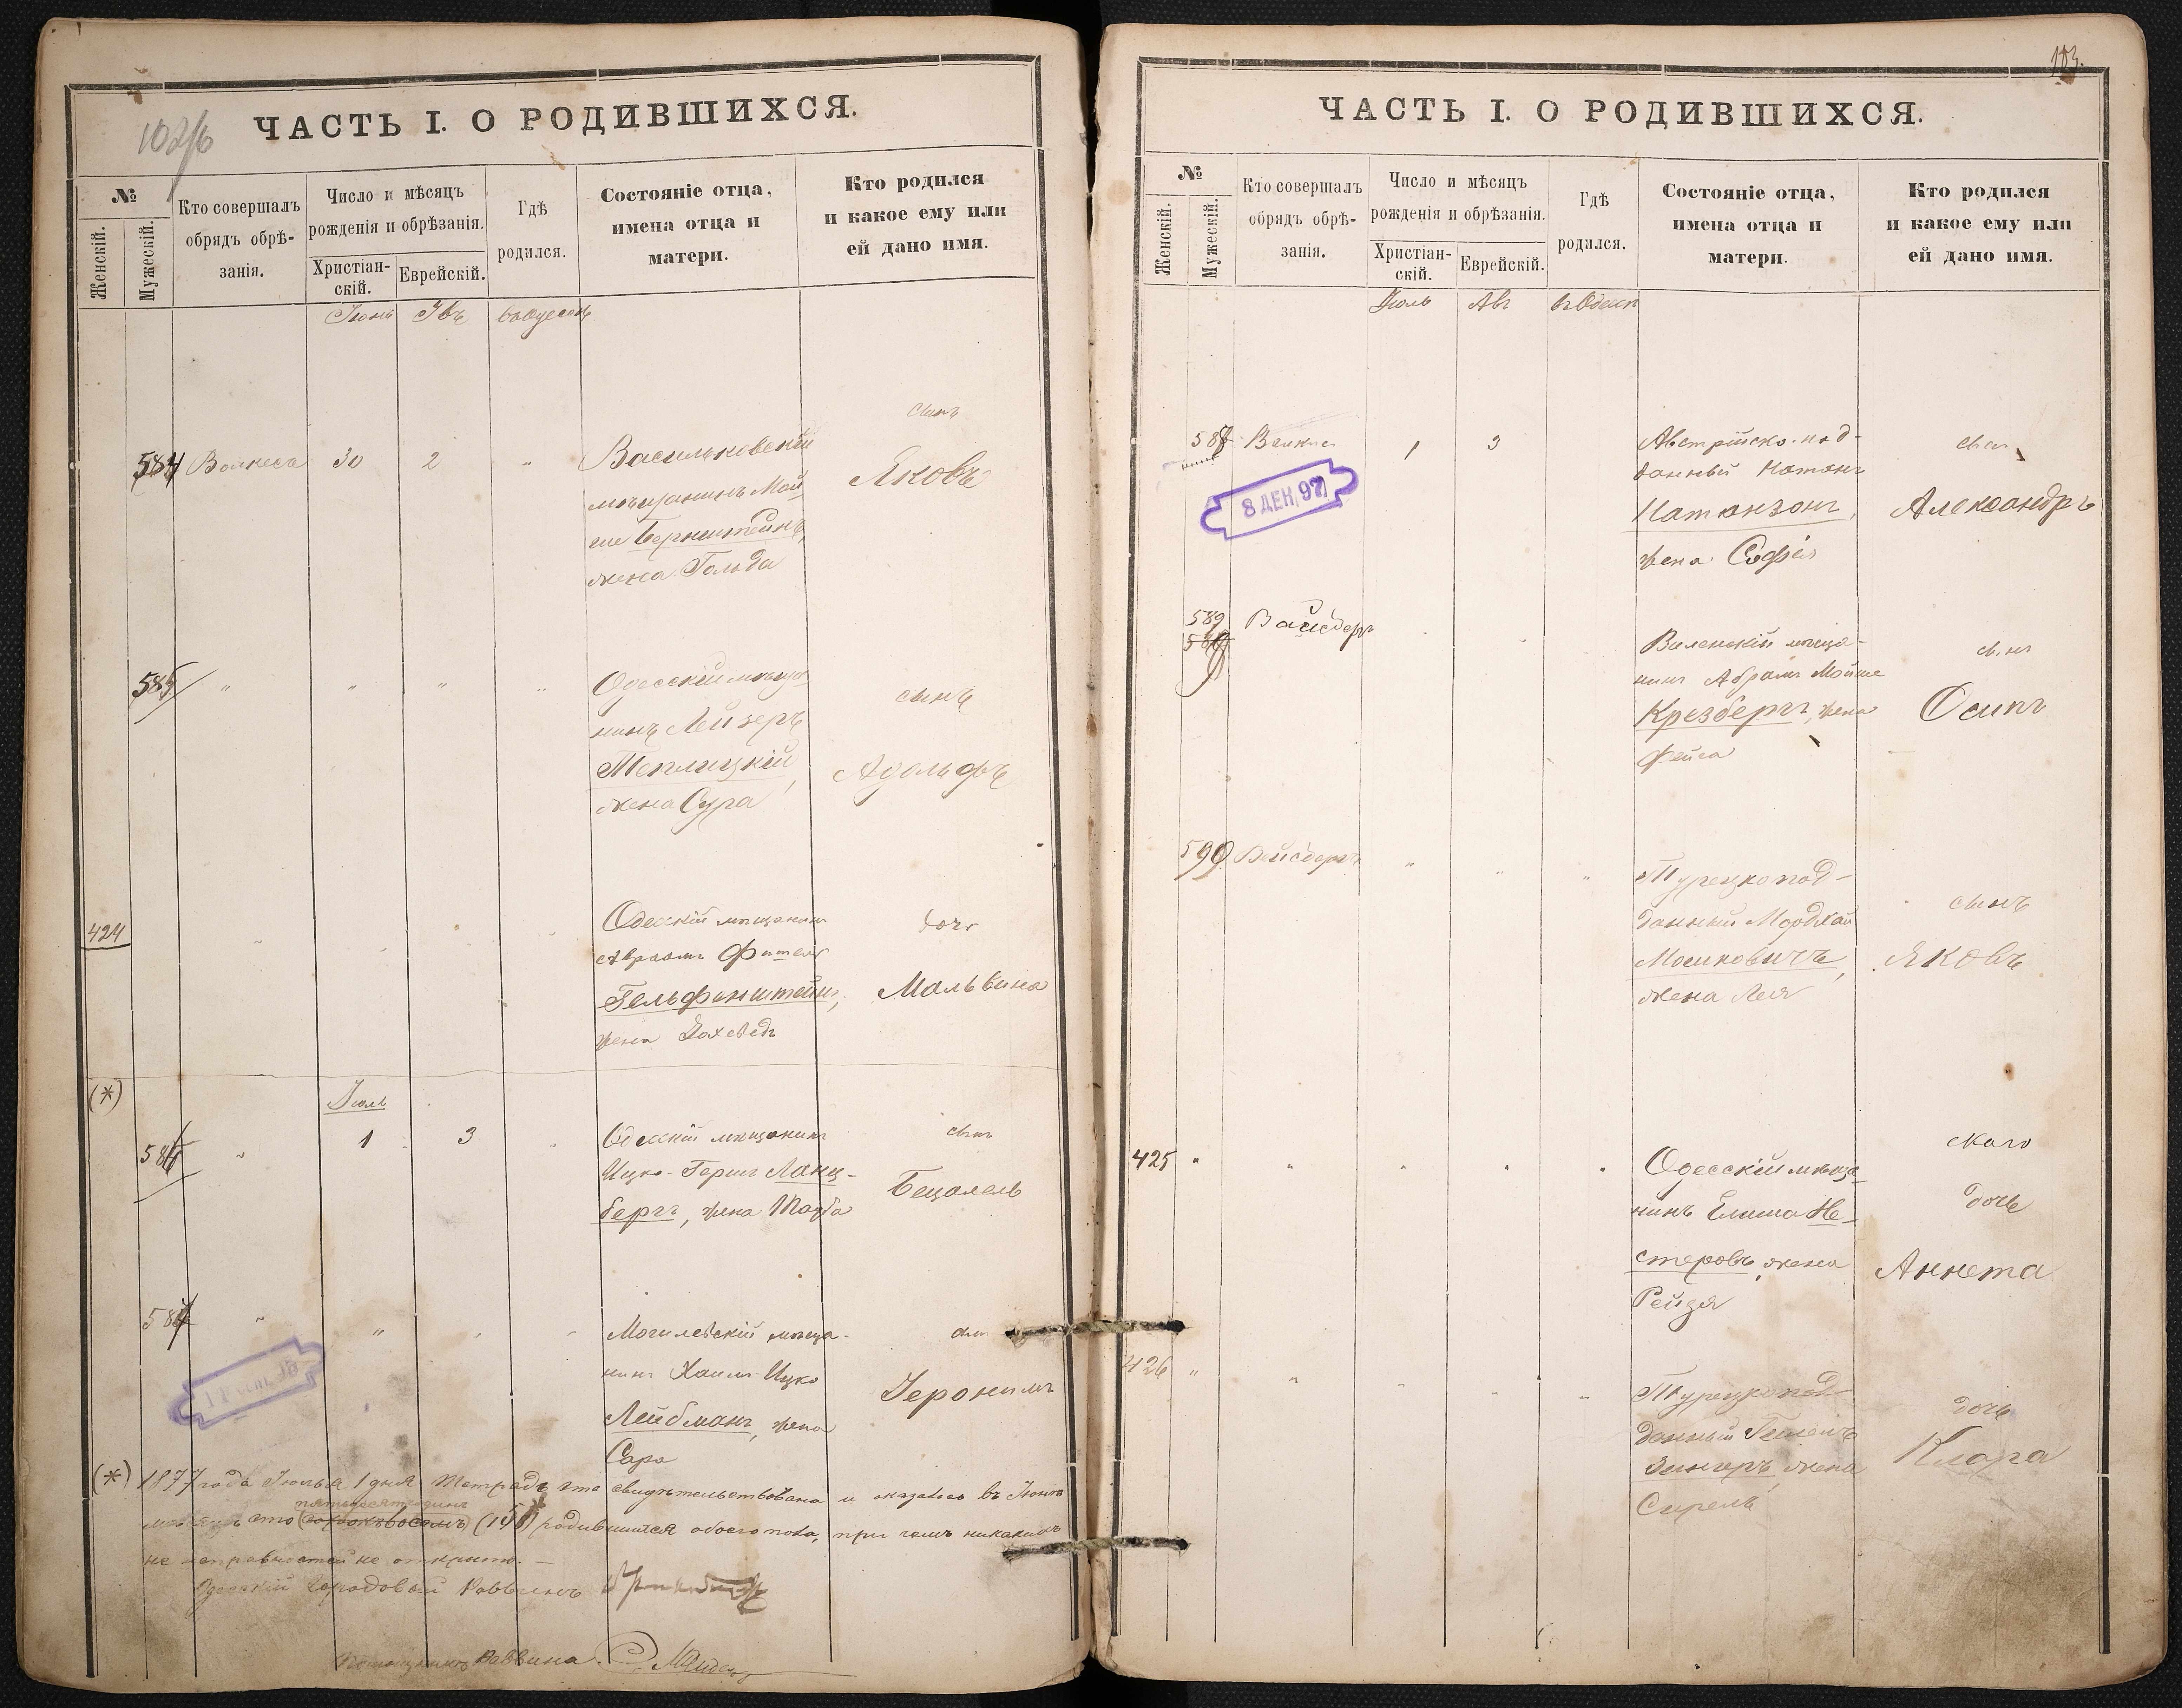 ЧАСТЬ I. О РОДИВШИХСЯ.
№
Женскій.
Мужескій.
Кто совершалъ
обрядъ обрѣ-
занія.
Число и мѣсяцъ
рожденія и обрѣзанія.
Христіан-
скій.
Еврейскій.
Гдѣ
родился.
Состояніе отца,
имена отца и
матери.
Кто родился
и какое ему или
ей дано имя.
Іюнь
584
30
2
"
Васильковскій
мѣщанинъ Мой
ше Бернштейнъ,
жена Гольда
сынъ
Яковъ
585
"
"
"
"
Одесскій мѣща
нинъ Лейзеръ
Теплицкій,
жена Сура
сынъ
Адольфъ
424
Одесскій мѣщанинъ
Гельфонштейнъ,
жена Іохеведъ
дочь
Мальвина
(*)
Іюль
586
1
3
Одесскій мѣщанинъ
Ицко-Герш Ланц-
бергъ, жена
сынъ
Бецалель
587
"
Могилевскій мѣща-
нинъ Хаим-Ицко
Лейбманъ, жена
Сара
сынъ
Іеронимъ
(*) 1877 года Іюля 1 дня Тетрадь эта свидѣтельствована и оказалось въ Іюнѣ
пятьдесятъ одинъ
мѣсяцѣ сто (сорокъ восемь) родившихся обоего пола, при чемъ никакихъ
не исправностей не открыто.—
Одесскій Городовый Раввинъ
Помощникъ Раввина
103.
ЧАСТЬ I. О РОДИВШИХСЯ.
№
Женскій.
Мужескій.
Кто совершалъ
обрядъ обрѣ-
занія.
Число и мѣсяцъ
рожденія и обрѣзанія.
Христіан-
скій.
Еврейскій.
Гдѣ
родился.
Состояніе отца,
имена отца и
матери.
Кто родился
и какое ему или
ей дано имя.
Іюль
Авъ
588
1
3
8 ДЕК. 97
Австрійско-под-
данный Натанъ
Натанзонъ,
жена Софія
сынъ
Александръ
589
Вайсбергъ
Виленскій мѣща-
нинъ Абрамъ Мойше
Крезбергъ, жена
Фейга
сынъ
Осипъ
590
Вейсбергъ
"
"
"
Турецкопод-
данный Мордхай
Мошковичъ,
жена Лея
сынъ
Яковъ
425
"
"
"
"
"
Одесскій мѣща
нинъ Елиша Не-
стеровъ, жена
Рейзя
дочь
Аннета
426
"
"
"
"
"
Турецкопод-
данный
Зингеръ, жена
Сирель
дочь
Клара